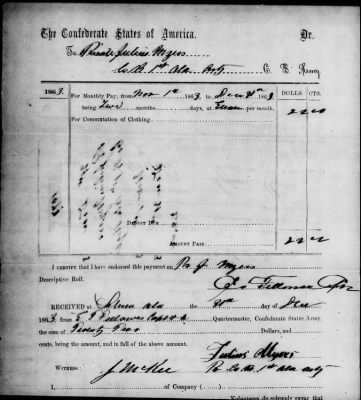 The Confederate States of America, Dr.
To Private Julius Myers
Co. B. 1st Ala Arty C. S. Army
1863. DOLLS. CTS.
For Monthly Pay, from Nov 1st 1863, to Dec 31st 1863
being Two months, days, at Eleven per month, 22 00
For Commutation of Clothing,
Deduct Due
Amount Paid 22 00
I certify that I have endorsed this payment on
Descriptive Roll.
Received at Selma Ala the 31st day of Dec
1863, from Quartermaster, Confederate States Army,
the sum of Twenty Two Dollars, and
cents, being the amount, and in full of the above account.
Julius Myers
Witness: J McKee Co. B. 1st Ala Arty
I, of Company ( )